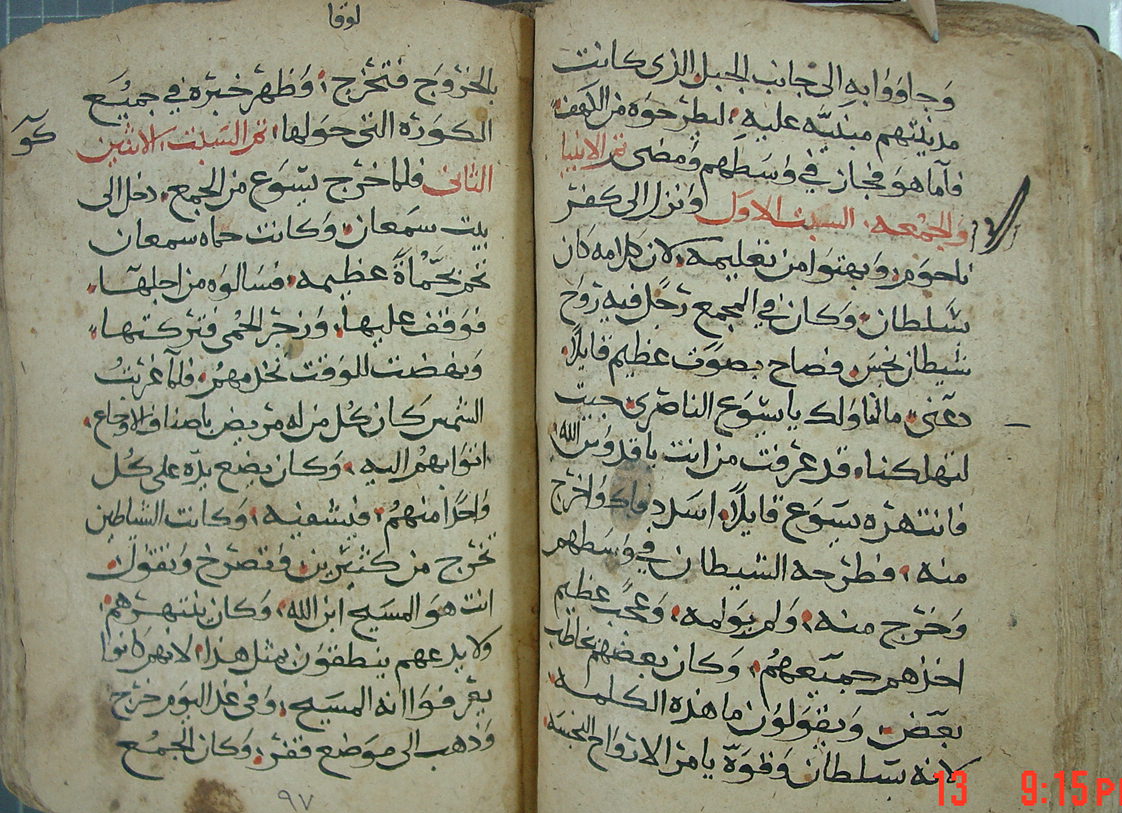 وجاووا به الى جانب الجبل الذى كانت
مدينتهم مبنيه عليه ليطرحوه من الكهف
فاما هو فجاز في وسطهم ومضى تم الابنيا
والجمعه السبت الاول ونزل الى كفر
ناحوم وبهتوا من تعليمه لان كلامه كان
بسلطان وكان في المجمع رجل فيه روح
شيطان نجس فصاح بصوت عظيم قايلا
دعنى مالنا ولك يايسوع الناصرى جيت
لتهلكنا قد عرفت من انت ياقدوس الله
فانتهره يسوع قايلا اسدد فاك واخرج
منه فطرحه الشيطان في وسطهم
وخرج منه ولم يولمه وعجب عظيم
اخذهم جميعهم وكان بعضهم يخاطب
بعض ويقولون ما هذه الكلمه
لانه بسلطان وقوة يامر الارواح النجسه
لوقا
بالخروج فتخرج وظهر خبره في جميع
الكورة التى حولها تم السبت الاثنين
الثانى فلما خرج يسوع من المجمع دخل الى
بيت سمعان وكانت حماه سمعان
تحم بحماة عظيمه فسالوه من اجلها
فوقف عليها وزجر الحمى فتركتها
ونهضت للوقت تخدمهم فلما غربت
الشمس كان كل من له مريض باصناف الاوجاع
اتوا بهم اليه وكان يضع يده على كل
واحدا منهم فيشفيه وكانت الشياطين
تخرج من كثيرين وتصرخ وتقول
انت هو المسيح ابن الله وكان ينتهرهم
ولا يدعهم ينطقون بمثل هذا لانهم كانوا
يعرفوا انه المسيح وفى غد اليوم خرج
وذهب الى موضع قفر وكان الجمع
٩٧
13 9:15 P